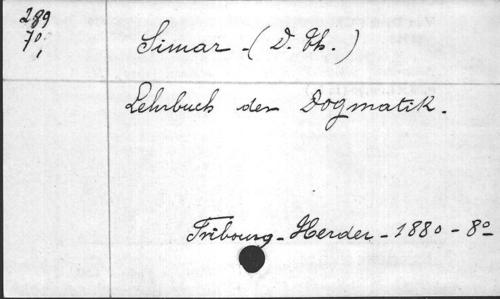 289
70,
Simar - (D. Th.)
Lehrbuch der Dogmatik.
Fribourg - Herder - 1880 - 8º